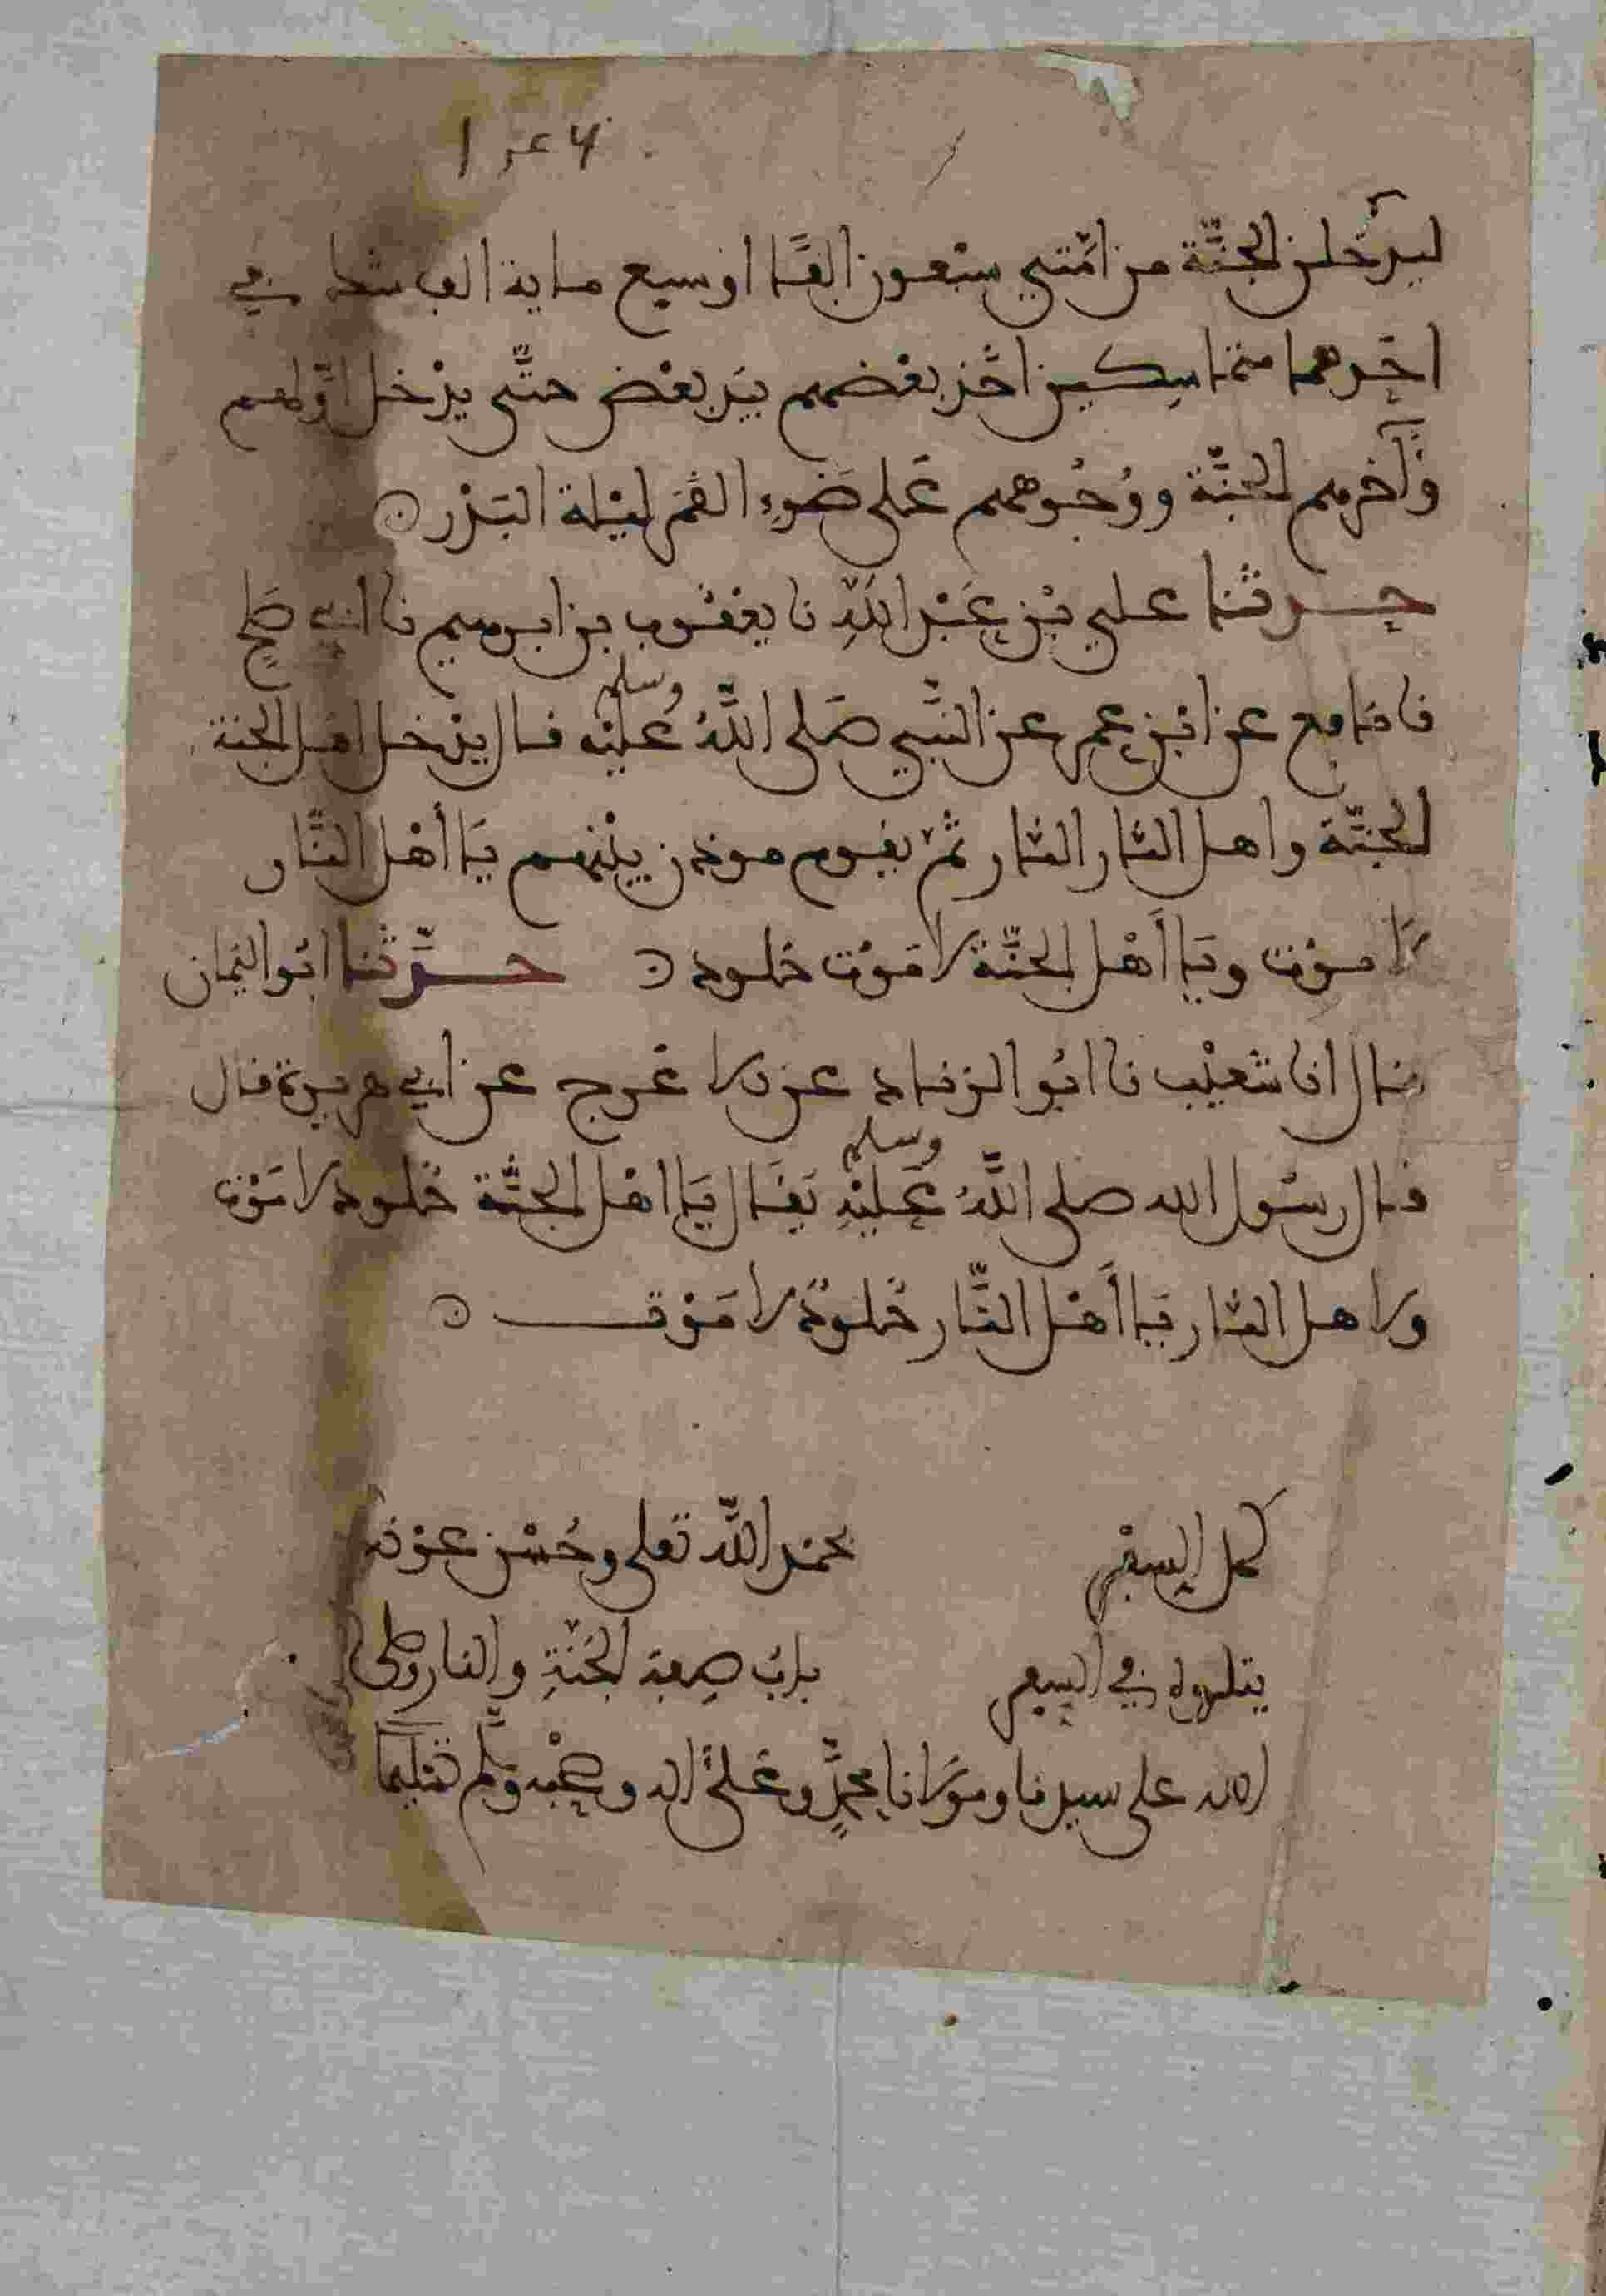 ليدخلن الجنّة من امّتي سبْعون الفًا او سبع ماية الف شك في
احدهما متماسكين اخذ بعْضهم بيَد بعْض حتّى يدْخل اوّلهم
وَآخرهم الجنّة ووُجُوههم عَلى ضَوء القمَر ليْلة البَدْر
حدثنا علي بْن عَبْد اللّهِ نا يعْقُوب بن ابرهيم نا ابي صَلح
نا نافع عن ابْن عمر عن النّبي صَلى اللّهُ عَليْه وسلم قال يدْخل اهل الجنة
الجنّة واهل النار النار ثمّ يقوم موذن بيْنهم يَا أهْل النّار
لا موْت ويَا أهْل الجنّة لا مَوْت خلود حدّثنا ابُو اليَمان
قال انا شعيْب نا ابُو الزناد عن الاعْرج عن ابي هريرة قال
قال رسُول الله صلى اللّهُ عَليْهِ وسلم يقَال يَا اهْل الجنّة خلود لا مَوْت
ولاهل النار يَا أهْل النّار خلودٌ لا مَوْت
كمل السفر بحمْد اللّه تعلى وحُسْن عوْنه
يتلوه في السفر بابُ صِفة الجَنّةِ والنار وصلى
الله على سيدنا ومَوْلانا محمّدٍ وعَلَى اله وصحْبه وسَلّم تسْليمًا